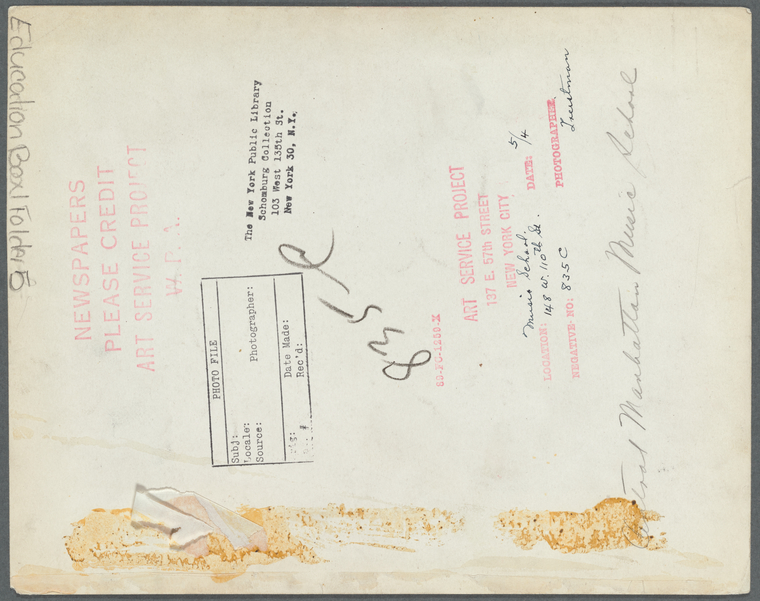 Education Box 1 Folder 5
NEWSPAPERS
PLEASE CREDIT
ART SERVICE PROJECT
W.P.A.
The New York Public Library
Schomburg Collection
103 West 135th St.
New York 30, N.Y.
PHOTO FILE
Subj:
Locale: Photographer:
Source:
Date Made:
Rec'd:
835 C
ART SERVICE PROJECT
137 E. 57th STREET
NEW YORK CITY
Music School.
LOCATION: 148 W. 110th St. DATE: 5/4
NEGATIVE NO: 835C PHOTOGRAPHER
Troutman
Central Manhattan Music School